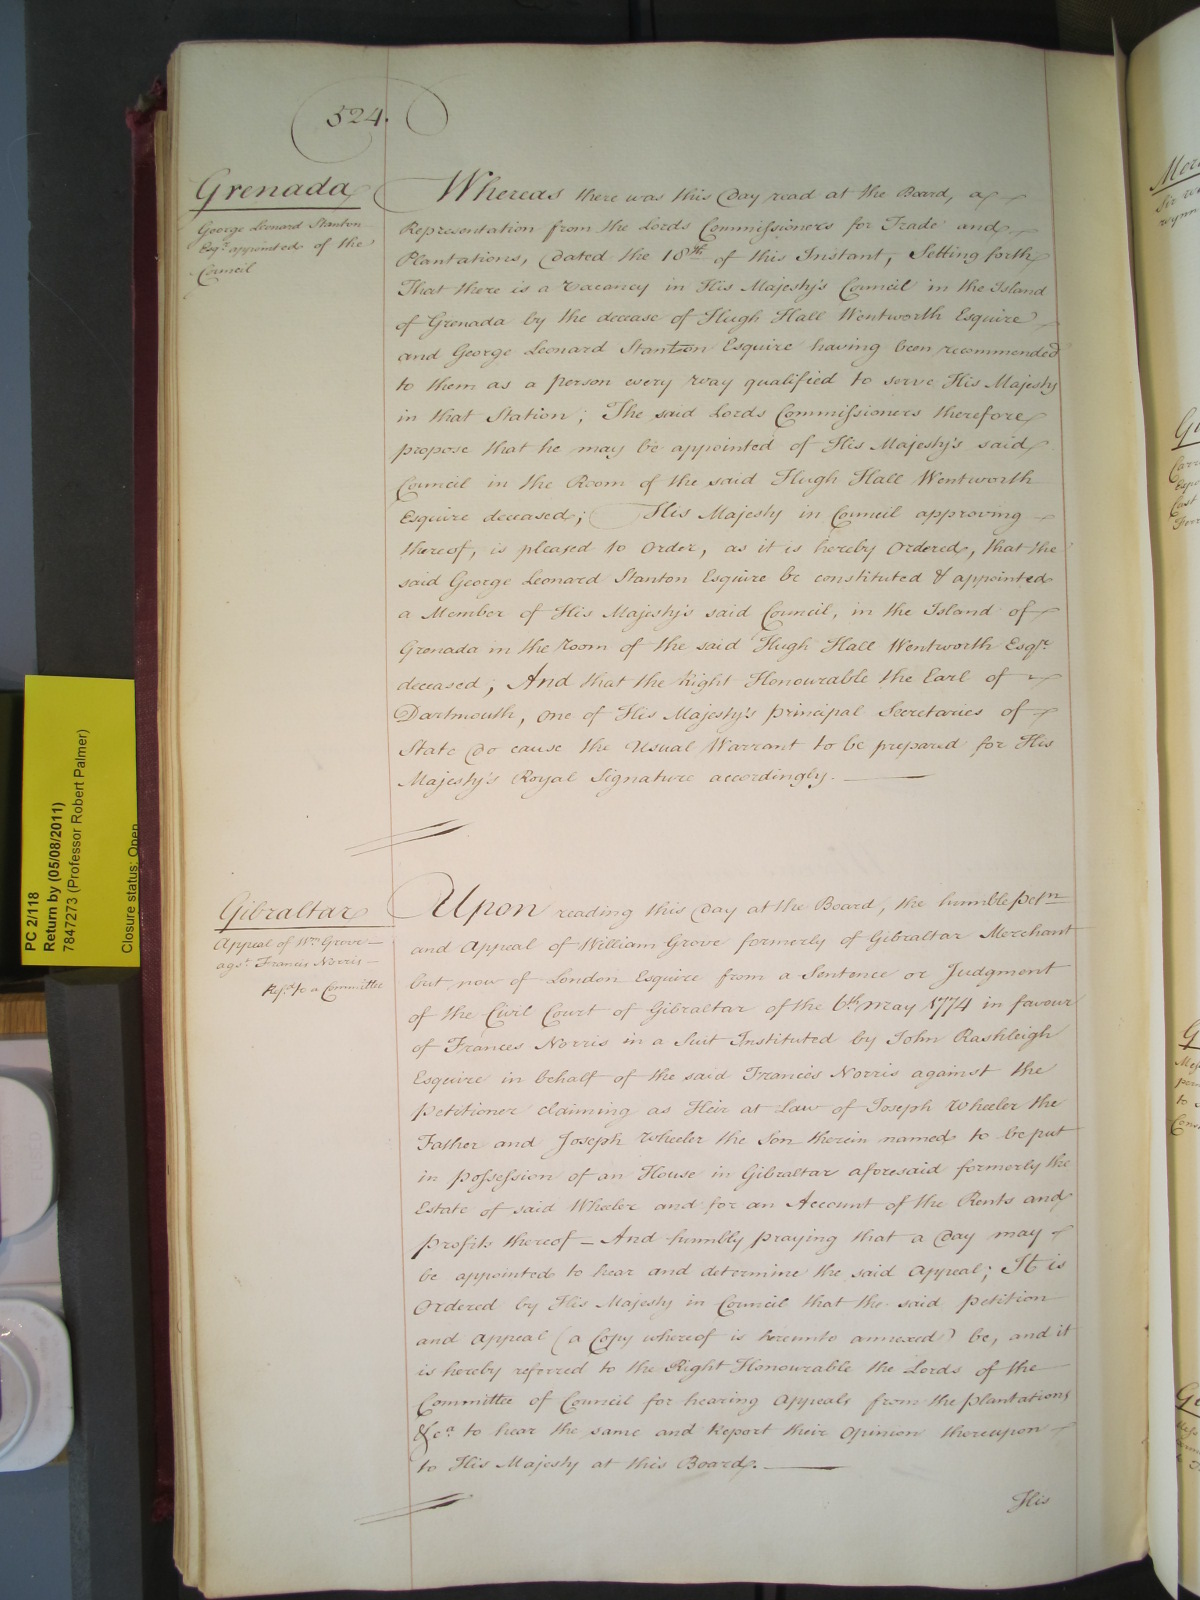 524.
Grenada
George Leonard Stanton
Esqr. appointed of the
Council
Whereas there was this Day read at the Board, a
Representation from the Lords Commissioners for Trade and
Plantations, dated the 18th of this Instant, Setting forth
That there is a Vacancy in His Majesty's Council in the Island
of Grenada by the decease of Hugh Hall Wentworth Esquire
and George Leonard Stanton Esquire having been recommended
to them as a person every way qualified to serve His Majesty
in that Station; The said Lords Commissioners therefore
propose that he may be appointed of His Majesty's said
Council in the Room of the said Hugh Hall Wentworth
Esquire deceased; His Majesty in Council approving
thereof, is pleased to Order, as it is hereby Ordered, that the
said George Leonard Stanton Esquire be constituted & appointed
a Member of His Majesty's said Council, in the Island of
Grenada in the room of the said Hugh Hall Wentworth Esqre.
deceased; And that the Right Honourable the Earl of
Dartmouth, one of His Majesty's principal Secretaries of
State do cause the Usual Warrant to be prepared for His
Majesty's Royal Signature accordingly.
Gibraltar
Appeal of Wm. Grove
agst. Francis Norris
Refd. to a Committee
Upon reading this Day at the Board, the humble Petn.
and Appeal of William Grove formerly of Gibraltar Merchant
but now of London Esquire from a Sentence or Judgment
of the Civil Court of Gibraltar of the 6th. May 1774 in favour
of Frances Norris in a Suit Instituted by John Rashleigh
Esquire in behalf of the said Frances Norris against the
Petitioner claiming as Heir at Law of Joseph Wheeler the
Father and Joseph Wheeler the Son therein named to be put
in possession of an House in Gibraltar aforesaid formerly the
Estate of said Wheeler and for an Account of the Rents and
profits thereof – And humbly praying that a Day may
be appointed to hear and determine the said Appeal; It is
Ordered by His Majesty in Council that the said Petition
and Appeal (a Copy whereof is hereunto annexed) be, and it
is hereby referred to the Right Honourable the Lords of the
Committee of Council for hearing Appeals from the Plantations
&ca. to hear the same and Report their Opinion thereupon
to His Majesty at this Board.
His
PC 2/118
Return by (05/08/2011)
7847273 (Professor Robert Palmer)
Closure status: Open